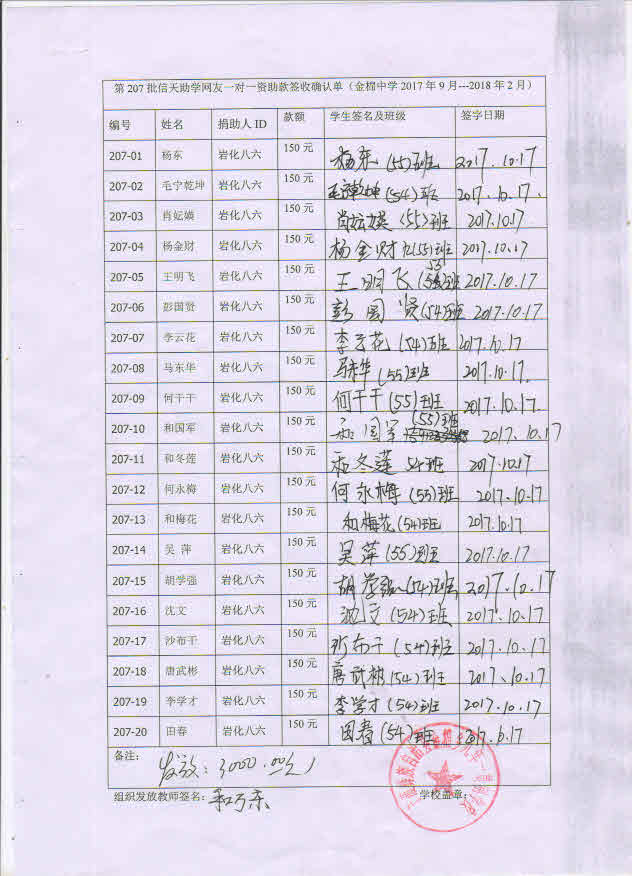 第 207 批信天助学网友一对一资助款签收确认单（金棉中学 2017 年 9 月---2018 年 2 月）
编号 姓名 捐助人 ID 款额 学生签名及班级 签字日期
207-01 杨东 岩化八六 150 元 杨东 (55)班 2017.10.17
207-02 毛宁乾坤 岩化八六 150 元 毛宁乾坤 (54)班 2017.10.17.
207-03 肖妘嫫 岩化八六 150 元 肖妘嫫 (55)班 2017.10.17
207-04 杨金财 岩化八六 150 元 杨金财 (55)班 2017.10.17
207-05 王明飞 岩化八六 150 元 王明飞 (55)班 2017.10.17
207-06 彭国贤 岩化八六 150 元 彭国贤 (54)班 2017.10.17
207-07 李云花 岩化八六 150 元 李云花 (54)班 2017.10.17
207-08 马东华 岩化八六 150 元 马东华 (55)班 2017.10.17.
207-09 何干干 岩化八六 150 元 何干干 (55)班 2017.10.17.
207-10 和国军 岩化八六 150 元 和国军 (55)班 2017.10.17
207-11 和冬莲 岩化八六 150 元 和冬莲 54班 2017.10.17
207-12 何永梅 岩化八六 150 元 何永梅 (55)班 2017.10.17
207-13 和梅花 岩化八六 150 元 和梅花 (54)班 2017.10.17
207-14 吴 萍 岩化八六 150 元 吴萍 (55)班 2017.10.17
207-15 胡学强 岩化八六 150 元 胡学强 (54)班 2017.10.17
207-16 沈文 岩化八六 150 元 沈文 (54)班 2017.10.17
207-17 沙布干 岩化八六 150 元 沙布干 (54)班 2017.10.17
207-18 唐武彬 岩化八六 150 元 唐武彬 (54)班 2017.10.17
207-19 李学才 岩化八六 150 元 李学才 (54)班 2017.10.17
207-20 田春 岩化八六 150 元 田春 (54)班 2017.10.17
备注：
发放：3000.00元
组织发放教师签名： 学校盖章：